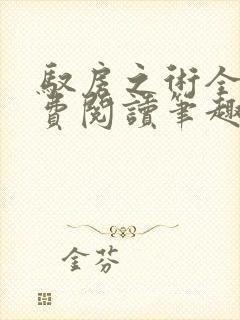 馭房之術全
費閱讀筆趣
金芬